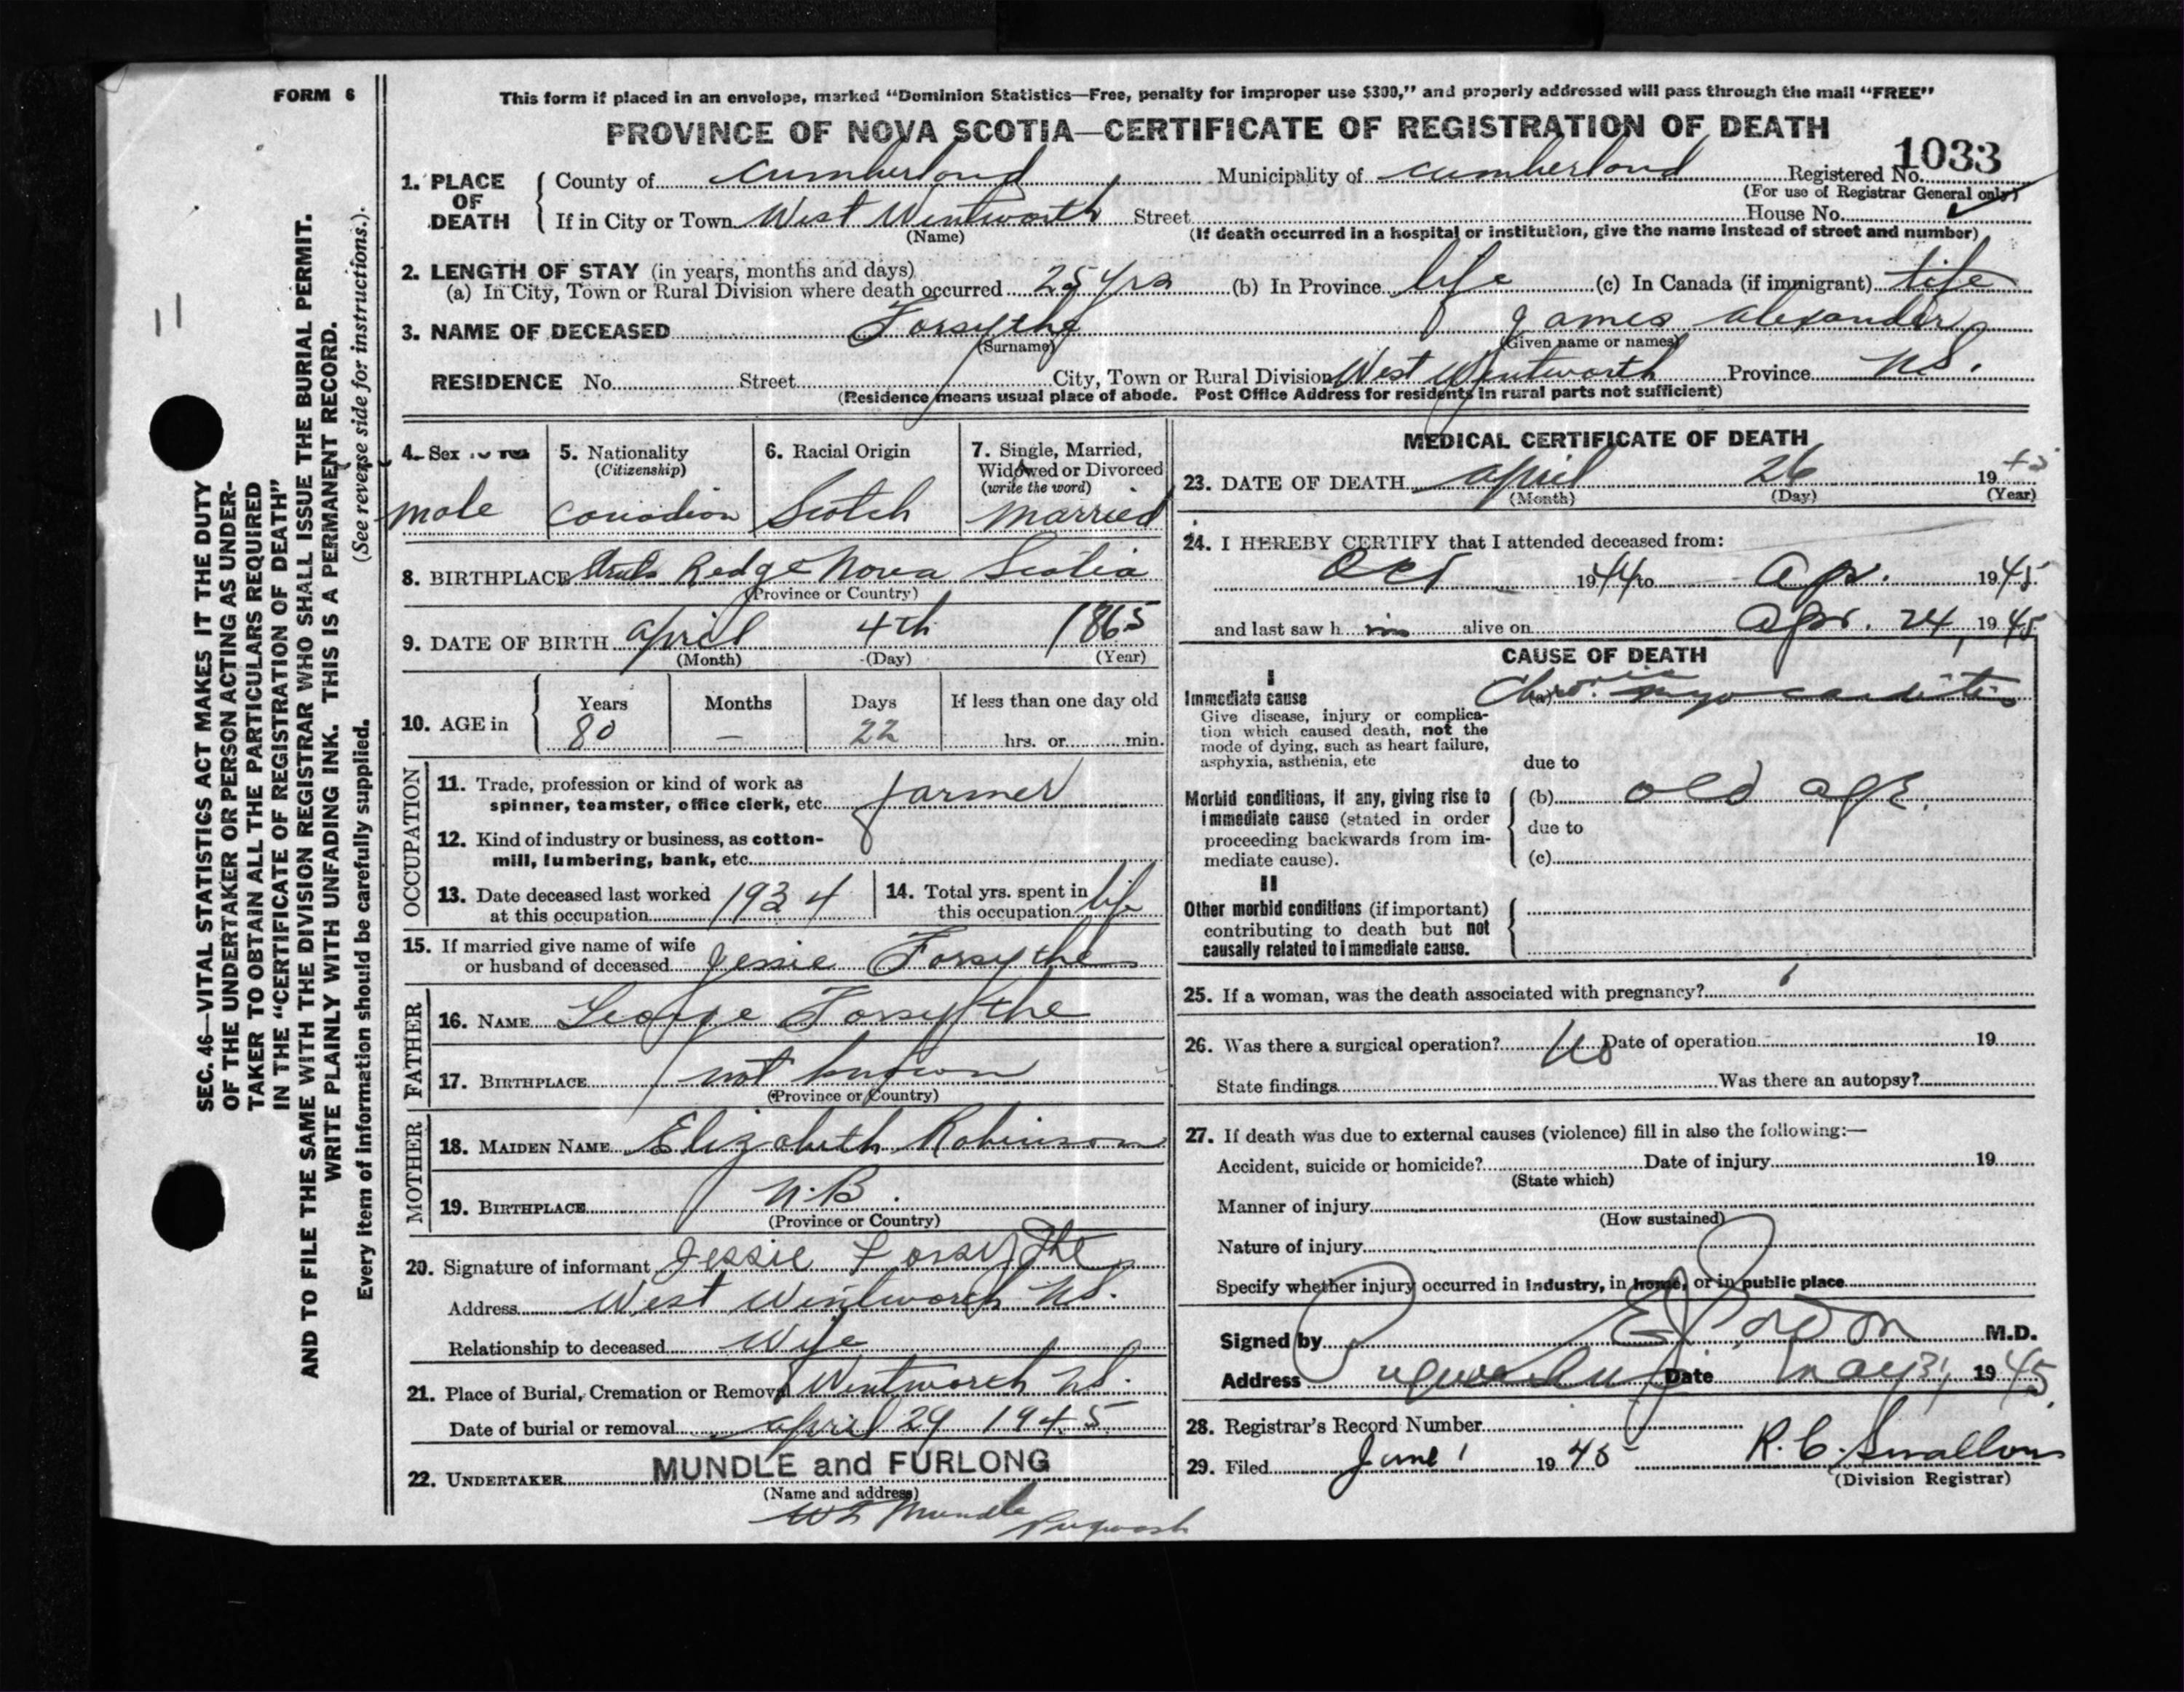 FORM 6
This form if placed in an envelope, marked “Dominion Statistics—Free, penalty for improper use $300,” and properly addressed will pass through the mail “FREE”
PROVINCE OF NOVA SCOTIA—CERTIFICATE OF REGISTRATION OF DEATH
1033
1. PLACE OF DEATH County of Cumberland Municipality of Cumberland Registered No.
(For use of Registrar General only)
If in City or Town West Wentworth Street House No.
(Name) (If death occurred in a hospital or institution, give the name instead of street and number)
2. LENGTH OF STAY (in years, months and days)
(a) In City, Town or Rural Division where death occurred 25 yrs (b) In Province life (c) In Canada (if immigrant) life
3. NAME OF DECEASED Forsythe James Alexander
(Surname) (Given name or names)
RESIDENCE No. Street City, Town or Rural Division West Wentworth Province N.S.
(Residence means usual place of abode. Post Office Address for residents in rural parts not sufficient)
4. Sex 5. Nationality 6. Racial Origin 7. Single, Married,
(Citizenship) Widowed or Divorced
(write the word)
male Canadian Scotch married
8. BIRTHPLACE Ridge Nova Scotia
(Province or Country)
9. DATE OF BIRTH April 4th 1865
(Month) (Day) (Year)
10. AGE in Years Months Days If less than one day old
80 — 22 hrs. or min.
OCCUPATION
11. Trade, profession or kind of work as
spinner, teamster, office clerk, etc. farmer
12. Kind of industry or business, as cotton-
mill, lumbering, bank, etc.
13. Date deceased last worked at this occupation 1934 14. Total yrs. spent in this occupation life
15. If married give name of wife
or husband of deceased Jessie Forsythe
FATHER
16. NAME George Forsythe
17. BIRTHPLACE not known
(Province or Country)
MOTHER
18. MAIDEN NAME Elizabeth Robinson
19. BIRTHPLACE N.B.
(Province or Country)
20. Signature of informant Jessie Forsythe
Address West Wentworth N.S.
Relationship to deceased Wife
21. Place of Burial, Cremation or Removal Wentworth N.S.
Date of burial or removal April 29 1945
22. UNDERTAKER MUNDLE and FURLONG
(Name and address)
Mundle Pugwash
MEDICAL CERTIFICATE OF DEATH
23. DATE OF DEATH April 26 1945
(Month) (Day) (Year)
24. I HEREBY CERTIFY that I attended deceased from:
Oct 1944 to Apr. 1945
and last saw him alive on Apr. 24, 1945
CAUSE OF DEATH
I
Immediate cause (a) Chronic myocarditis
Give disease, injury or complica-
tion which caused death, not the
mode of dying, such as heart failure,
asphyxia, asthenia, etc due to
Morbid conditions, if any, giving rise to (b) old age.
immediate cause (stated in order
proceeding backwards from im- due to
mediate cause). (c)
II
Other morbid conditions (if important)
contributing to death but not
causally related to immediate cause.
25. If a woman, was the death associated with pregnancy?
26. Was there a surgical operation? No Date of operation 19
State findings Was there an autopsy?
27. If death was due to external causes (violence) fill in also the following:—
Accident, suicide or homicide? Date of injury 19
(State which)
Manner of injury
(How sustained)
Nature of injury
Specify whether injury occurred in industry, in home, or in public place
Signed by M.D.
Address Pugwash Date May 31 1945
28. Registrar’s Record Number
29. Filed June 1 1945 R. C. Swallow
(Division Registrar)
SEC. 46—VITAL STATISTICS ACT MAKES IT THE DUTY
OF THE UNDERTAKER OR PERSON ACTING AS UNDER-
TAKER TO OBTAIN ALL THE PARTICULARS REQUIRED
IN THE “CERTIFICATE OF REGISTRATION OF DEATH”
AND TO FILE THE SAME WITH THE DIVISION REGISTRAR WHO SHALL ISSUE THE BURIAL PERMIT.
WRITE PLAINLY WITH UNFADING INK. THIS IS A PERMANENT RECORD.
Every item of information should be carefully supplied. (See reverse side for instructions.)
11